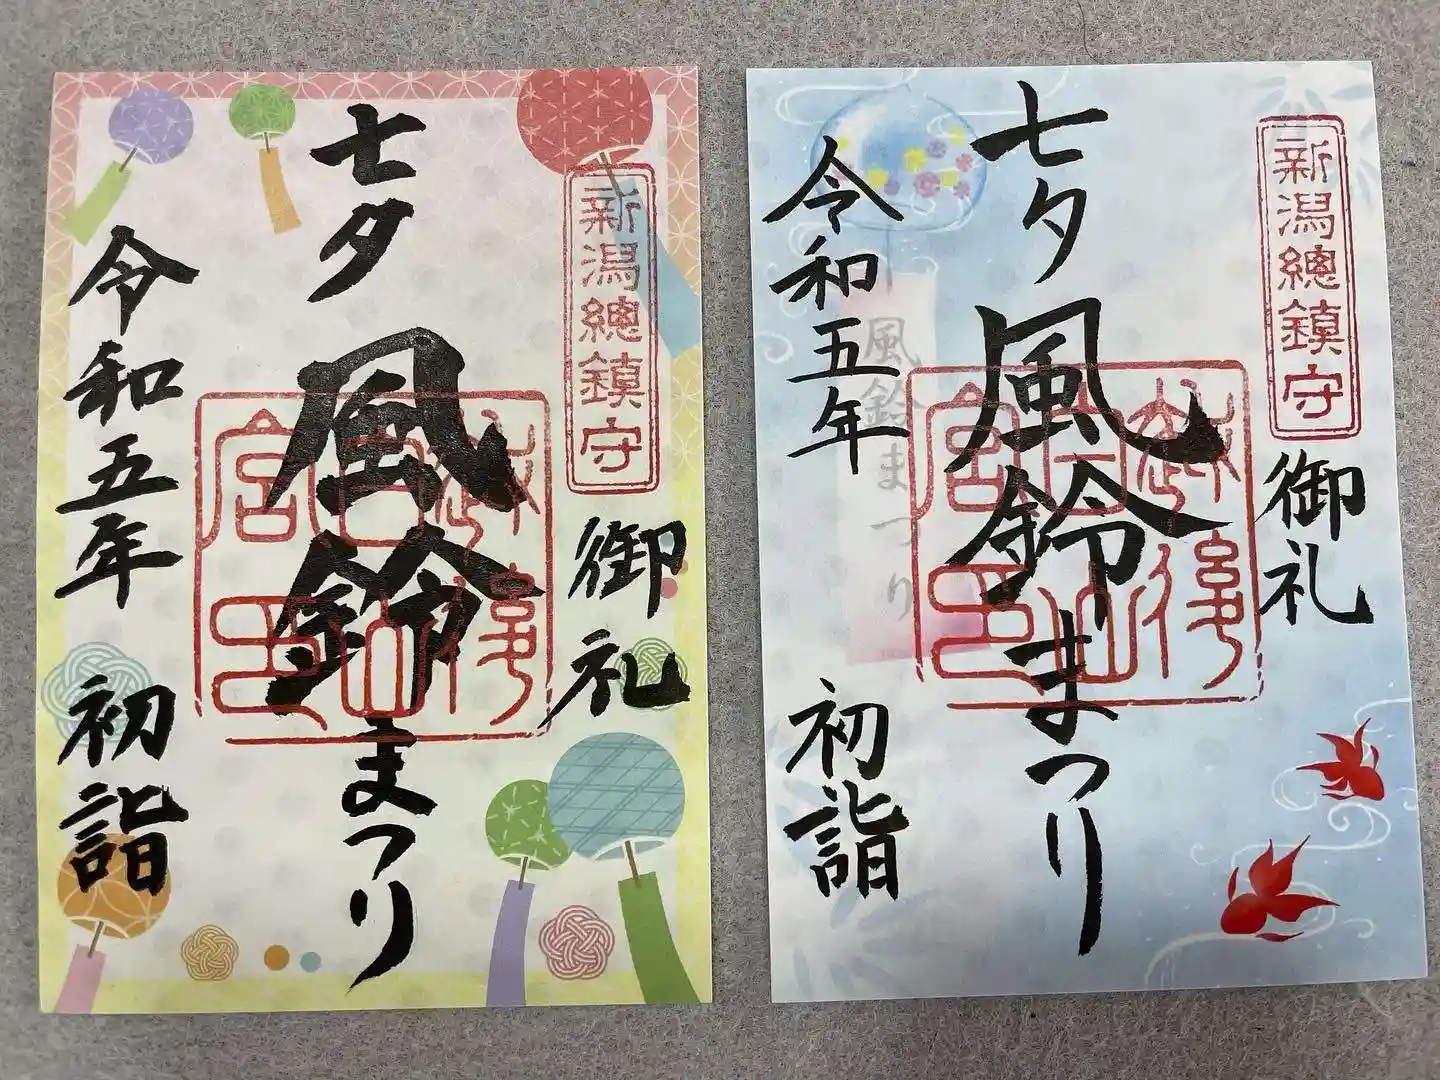 新潟總鎮守
御礼
七夕風鈴まつり
令和五年 初詣
新潟總鎮守
御礼
七夕風鈴まつり
風鈴まつり
令和五年 初詣